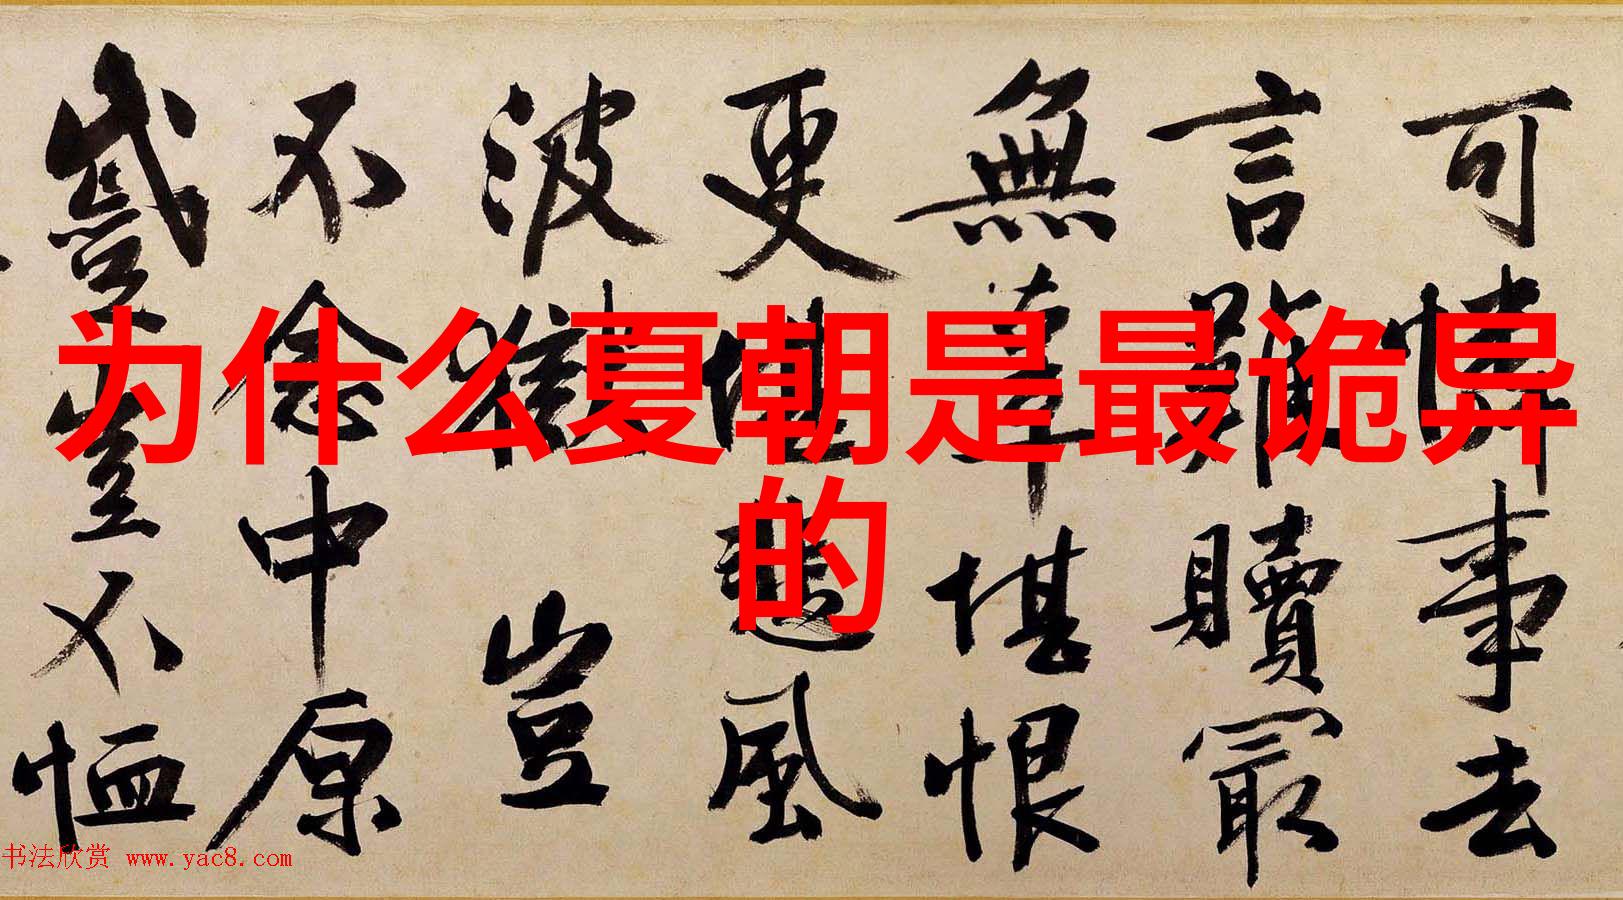 为什么夏朝是最诡异
的
可憐事去
言難贖冣
無辜堪恨
更風
波獄豈
不念中原
豈不恤
书法欣赏 www.yac8.com